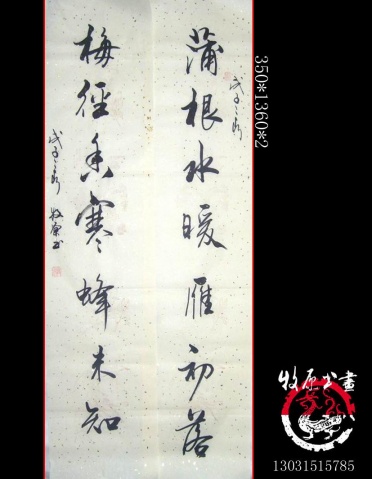 蒲根水暖雁初落
梅徑香寒蜂未知
牧原书
350*1360*2
牧原书畫
13031515785